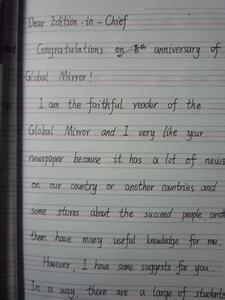 Dear Edition-in-Chief
Congratulations on 8th anniversary of
Global Mirror!
I am the faithful reader of the
Global Mirror and I very like your
newspaper because it has a lot of news
on our country or another countries and
some stores about the succeed people, and
them have many useful knowledge for me.
However, I have some suggests for you.
In a way, there are a large of students